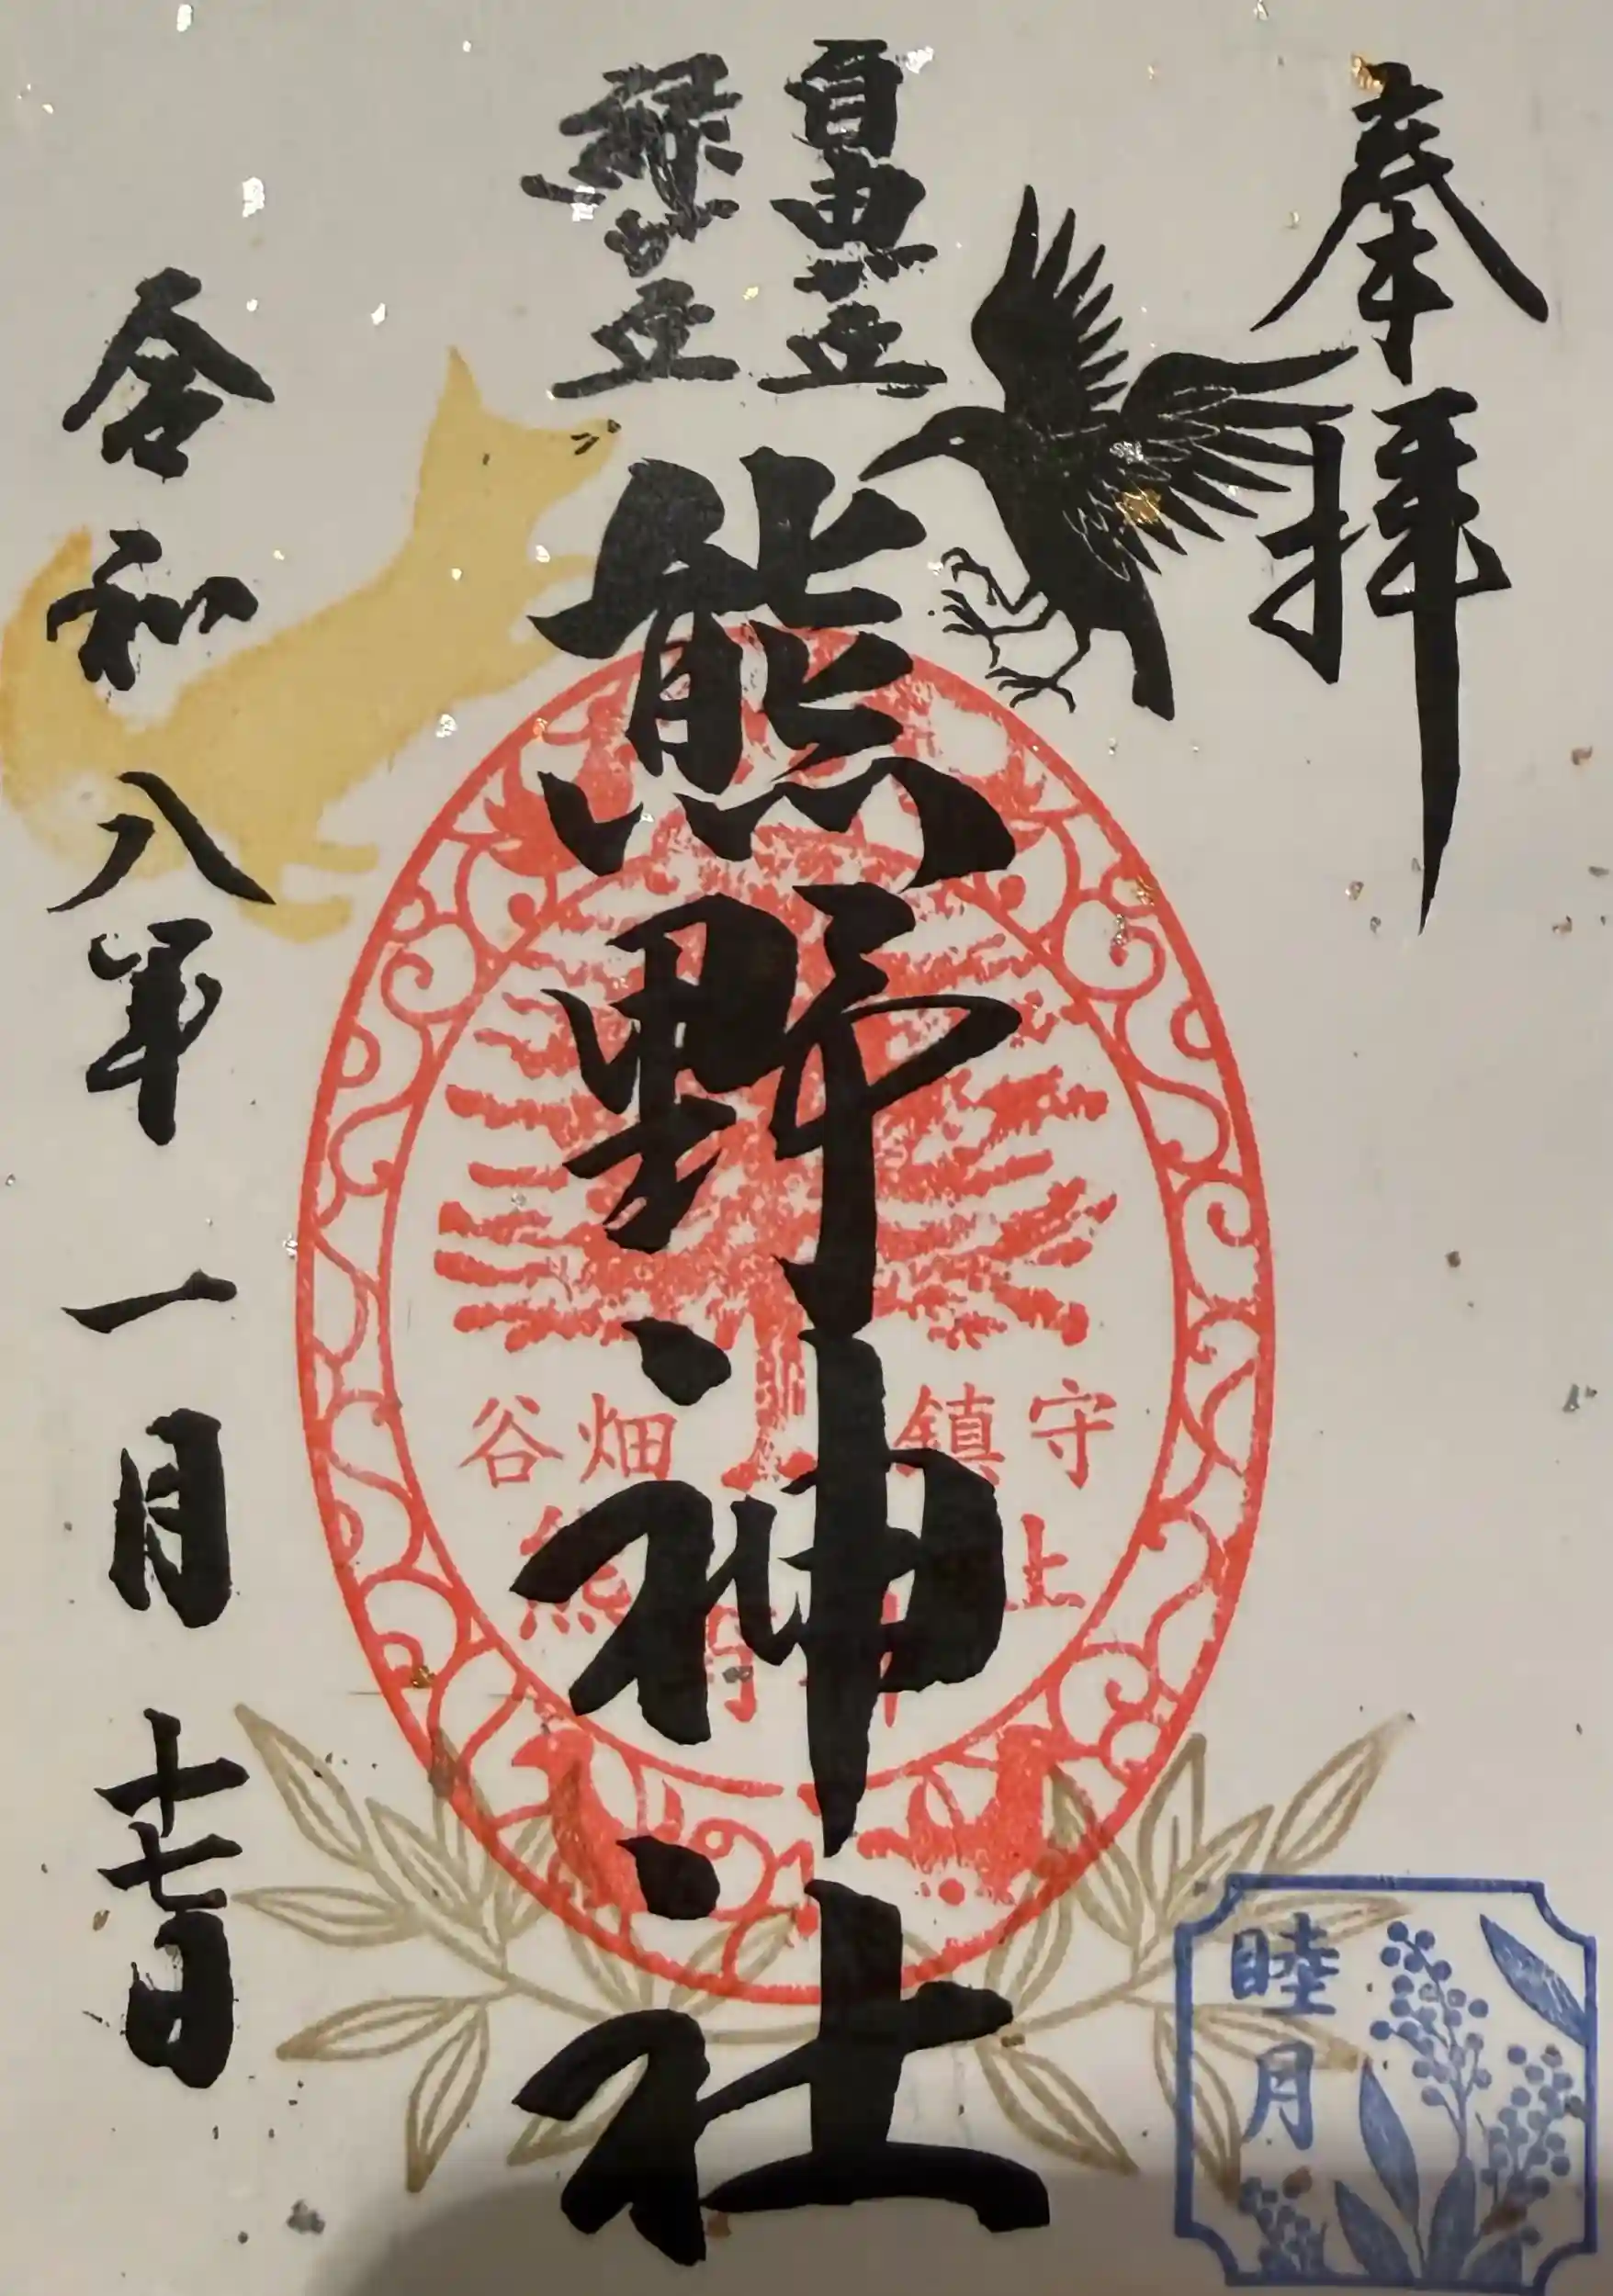 奉拝
熊野神社
令和八年一月十七日
谷畑 鎮守
熊 上
睦月